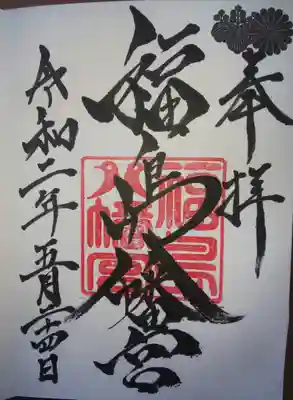 奉拝
福島八幡宮
令和二年五月二十四日